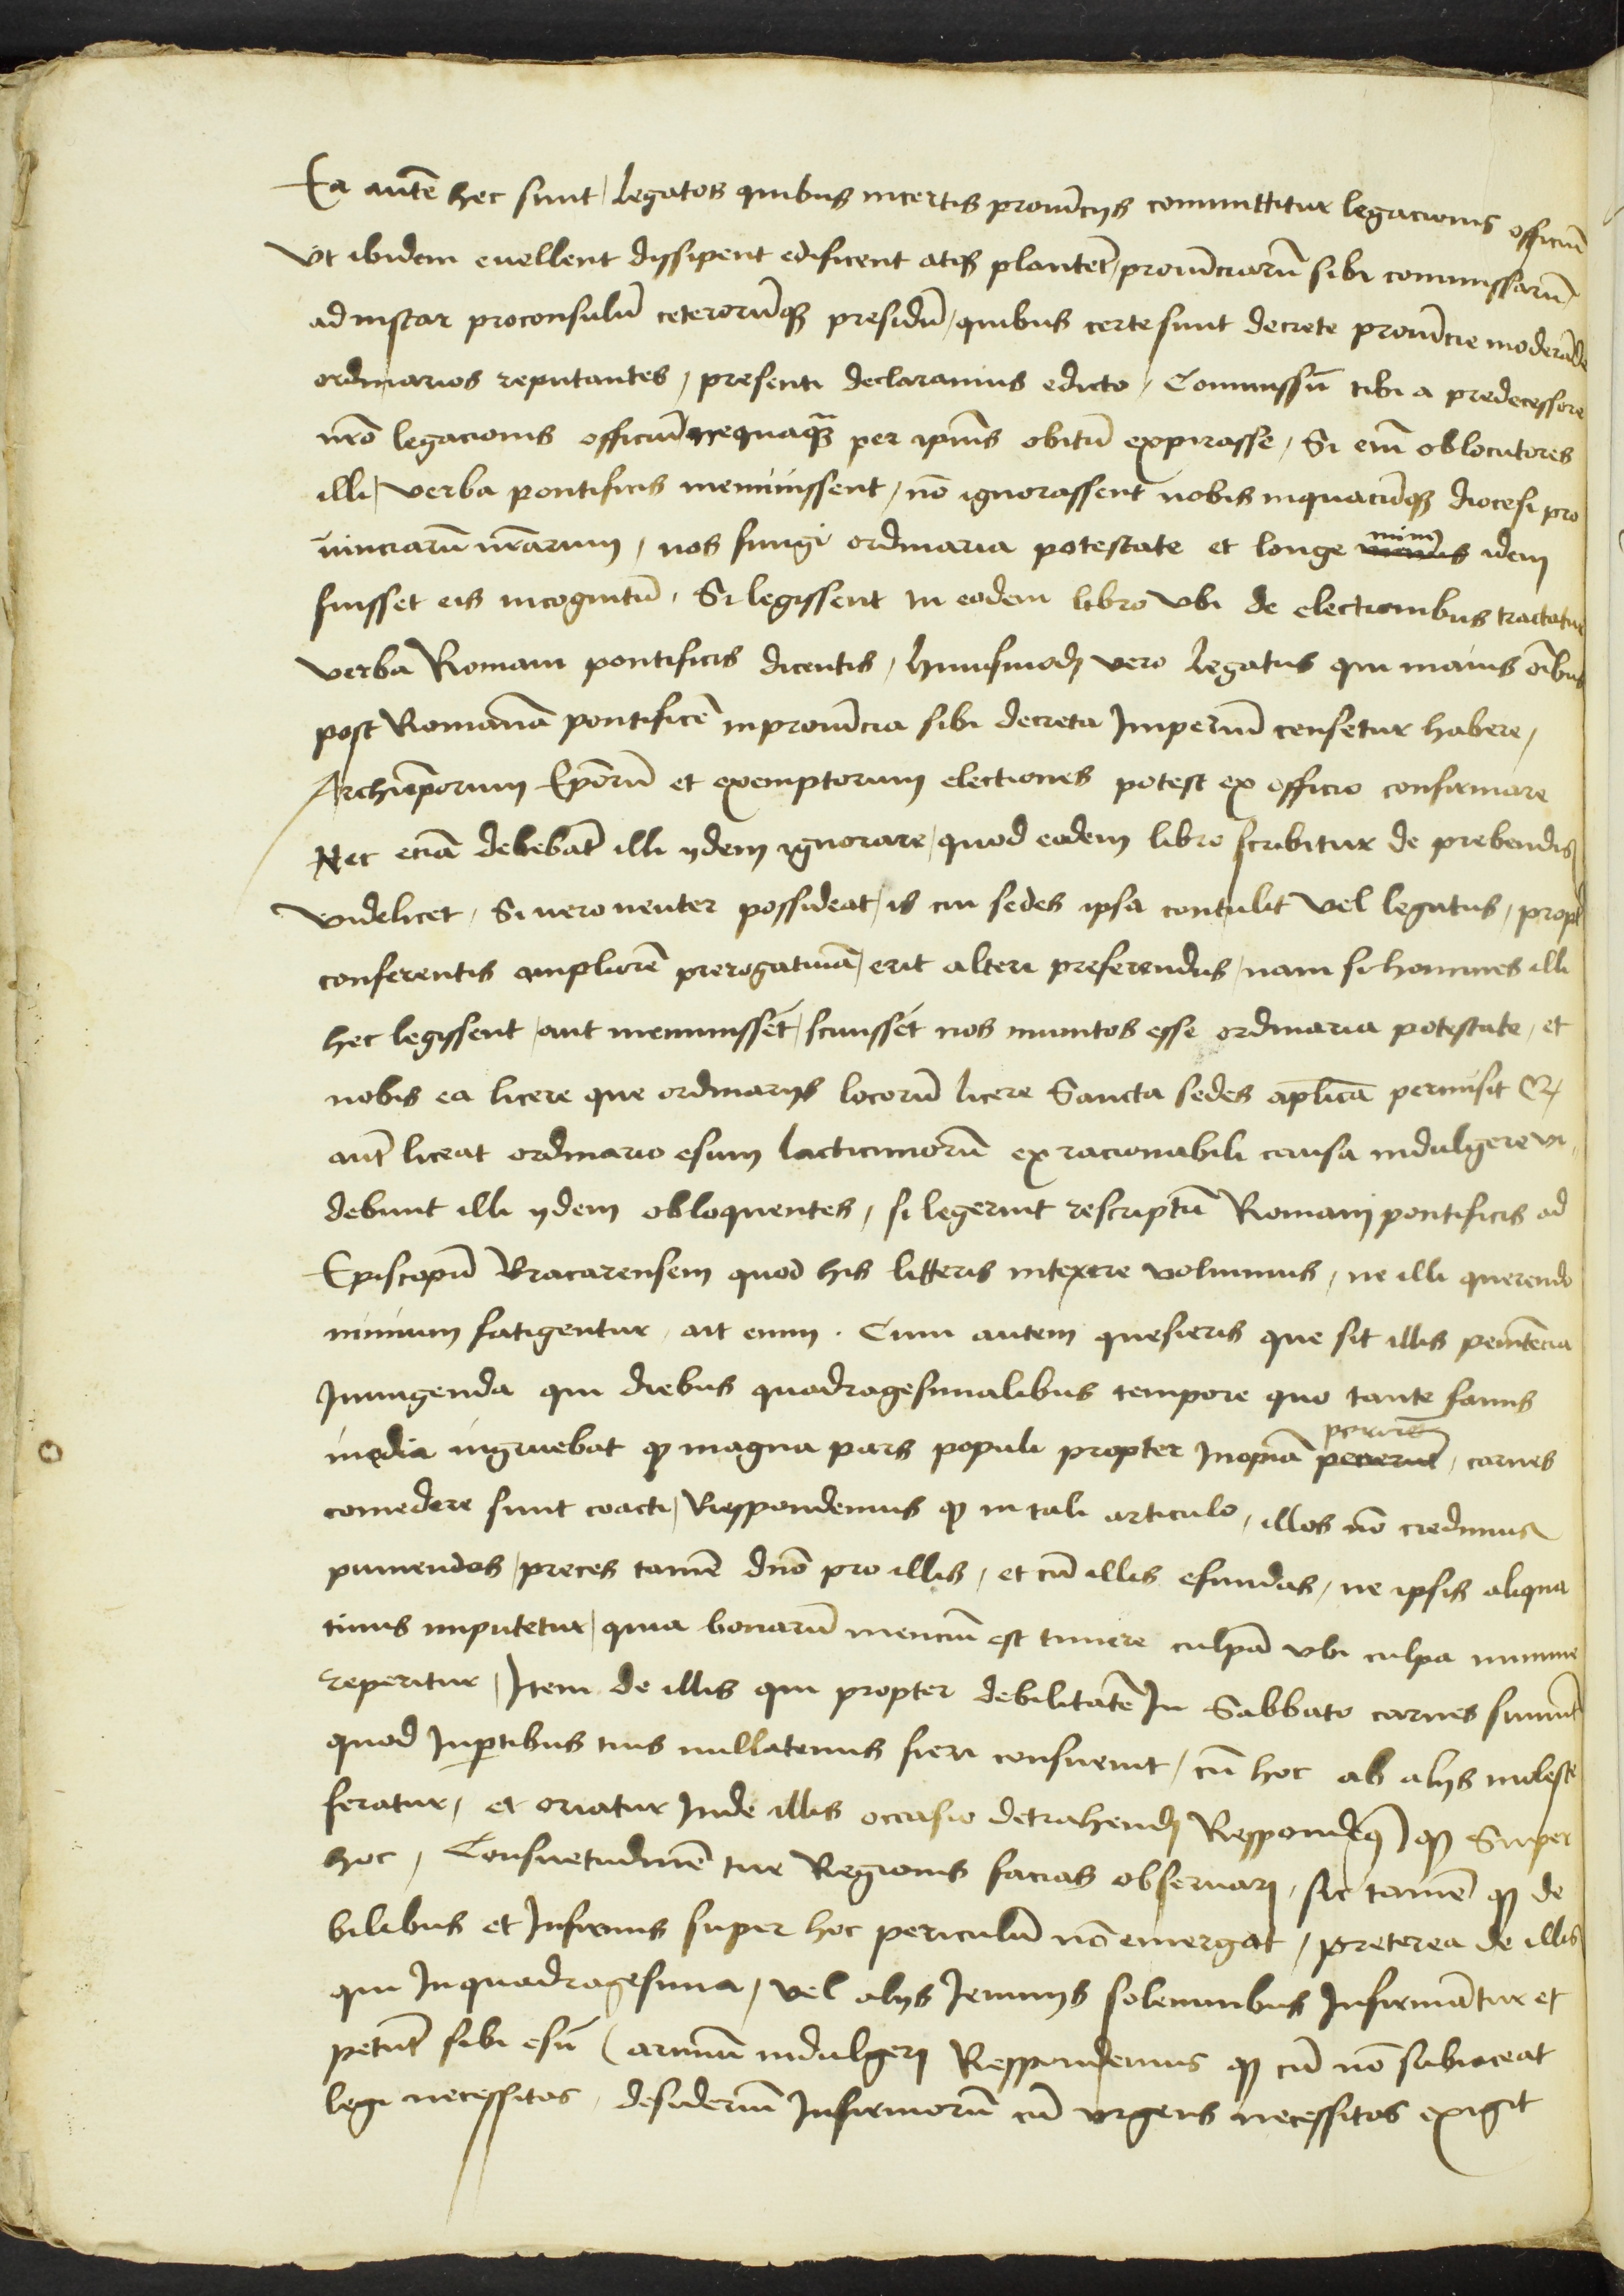 Ea autē hec sunt / legatos quibus incertis prouīcijs committitur legacionis officiū
vt ibidem euellent dissipent edificent atq₃ plantēt / prouīciarū sibi commissarū
ad instar proconsulū ceterorūq₃ presidū / quibus certe sunt decrete prouīcie moderāde
ordinarios reputantes / presenti declaramus edicto / Commissū tibi a predecessore
nr̄o legacionis officiū nequaq̄₃ per ipius obitū expirasse / Si enī oblocutores
illi / verba pontificis meminissent / nō ignorassent nobis inquacūq₃ diocesi pro
uinciarū nr̄arum / nos fungi ordinaria potestate et longe minꝰ idem
fuisset eis incognitū / Si legissent in eodem libro vbi de electionibus tractatur
verba Romani pontificis dicentis / huiusmodj vero legatus qui maius oībus
post Romanū pontificē in prouīcia sibi decreta Imperiū censetur habere /
Archiep̄orum Ep̄orū et exemptorum electiones potest ex officio confirmare
Nec eciā debebāt illi ijdem ignorare / quod eodem libro scribitur de prebendis
videlicet / Si uero neuter possideat / is cui sedes ipsa contulit vel legatus / propt̄
conferentis ampliorē prerogatiuā / erit alteri preferendus / nam si homines illi
hec legissent / aut meminissēt / scinissēt nos munitos esse ordinaria potestate / et
nobis ea licere que ordinarijs locorū licere Sancta sedes ap̄lica permisit Q₃
aut̄ liceat ordinario esum lacticiniorū ex racionabili causa indulgere vi
debunt illi ijdem obloquentes / si legerint rescriptū Romanj pontificis ad
Episcopū Bracarensem quod his litteris intexere volumus / ne illi querendo
nimium fatigentur / ait enim . Cum autem quesieris que sit illis penītēcia
Iniungenda qui diebus quadragesimalibus tempore quo tante famis
inedia ingruebat q₃ magna pars populi propter Inopiā perirēt , carnes
comedere sunt coacti / Respondemus q₃ in tali articulo / illos nō credimus
puniendos / preces tamē dn̄o pro illis / et cū illis efundas / ne ipsis aliqua
tinus imputetur / quia bonarū menciū est timere culpā vbi culpa minime
reperitur / Item de illis qui propter debilitatē In Sabbato carnes sumūt
quod In ꝑtibus tuis nullatenus fieri consueuit / cū hoc ab alijs moleste
feratur / et oriatur Inde illis occasio detrahendj Respondeꝰ q₃ Super
hoc / Consuetudinē tue Regionis facias obseruarj / sic tamē q₃ de
bilibus et Infirmis super hoc periculū nō emergat / preterea de illis
qui In quadragesima / vel alijs Ieiunijs solennibus Infirmātur et
petūt sibi esū Carniū indulgerj Respondemus q₃ cū nō subiaceat
legi necessitas / desideriū Infirmorū cū vrgens necessitas exigit